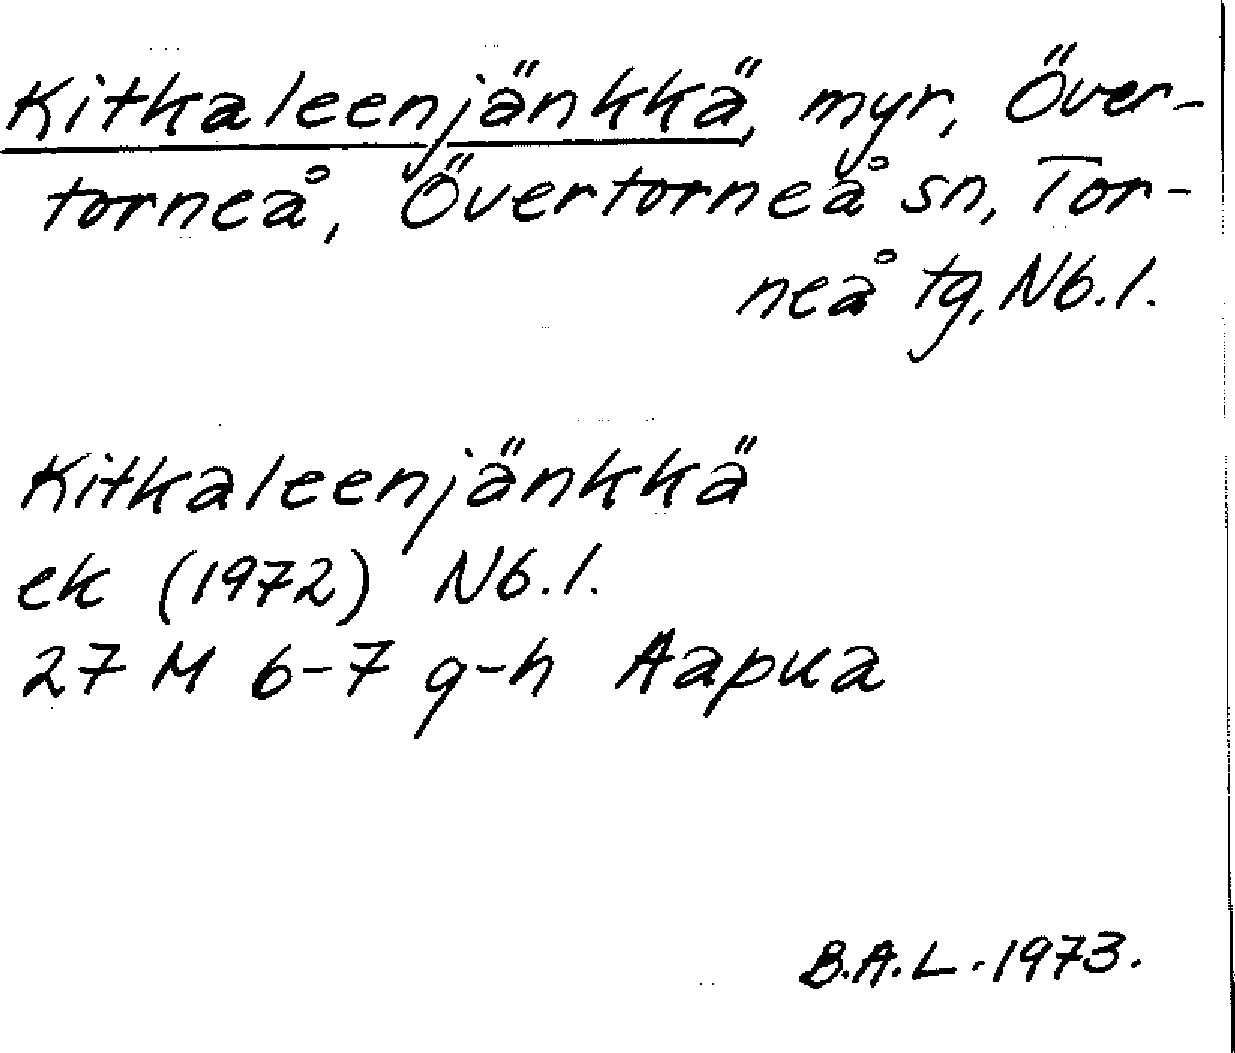 Kitkaleenjänkkä, myr, Över-
torneå, Övertorneå sn, Tor-
neå tg, Nb. l.
Kitkaleenjänkkä
ek (1972) Nb. l.
27 M 6-7 g-h Aapua
B.A.L. 1973.